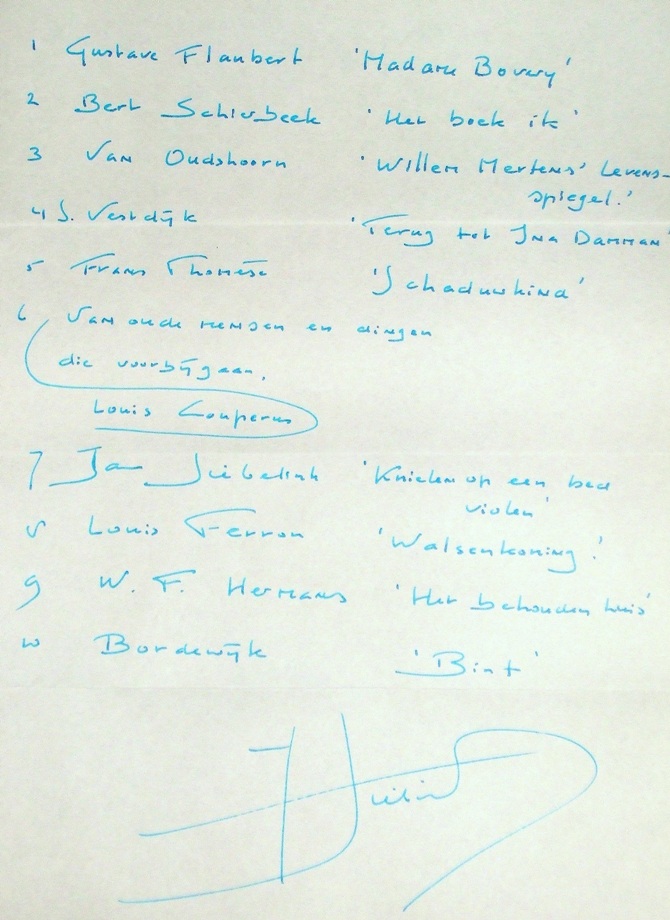 1 Gustave Flaubert 'Madame Bovery'
2 Bert Schierbeek 'Het boek ik'
3 Van Oudshoorn 'Willem Mertens' Levens-
spiegel.'
4 S. Vestdijk 'Terug tot Ina Damman'
5 Frans Thomése 'Schaduwkind'
6 Van oude mensen en dingen
die voorbijgaan.
Louis Couperus
7 Jan Siebelink 'Knielen op een bed
violen'
8 Louis Ferron 'Walsenkoning'
9 W. F. Hermans 'Het behouden huis'
10 Bordewijk 'Bint'